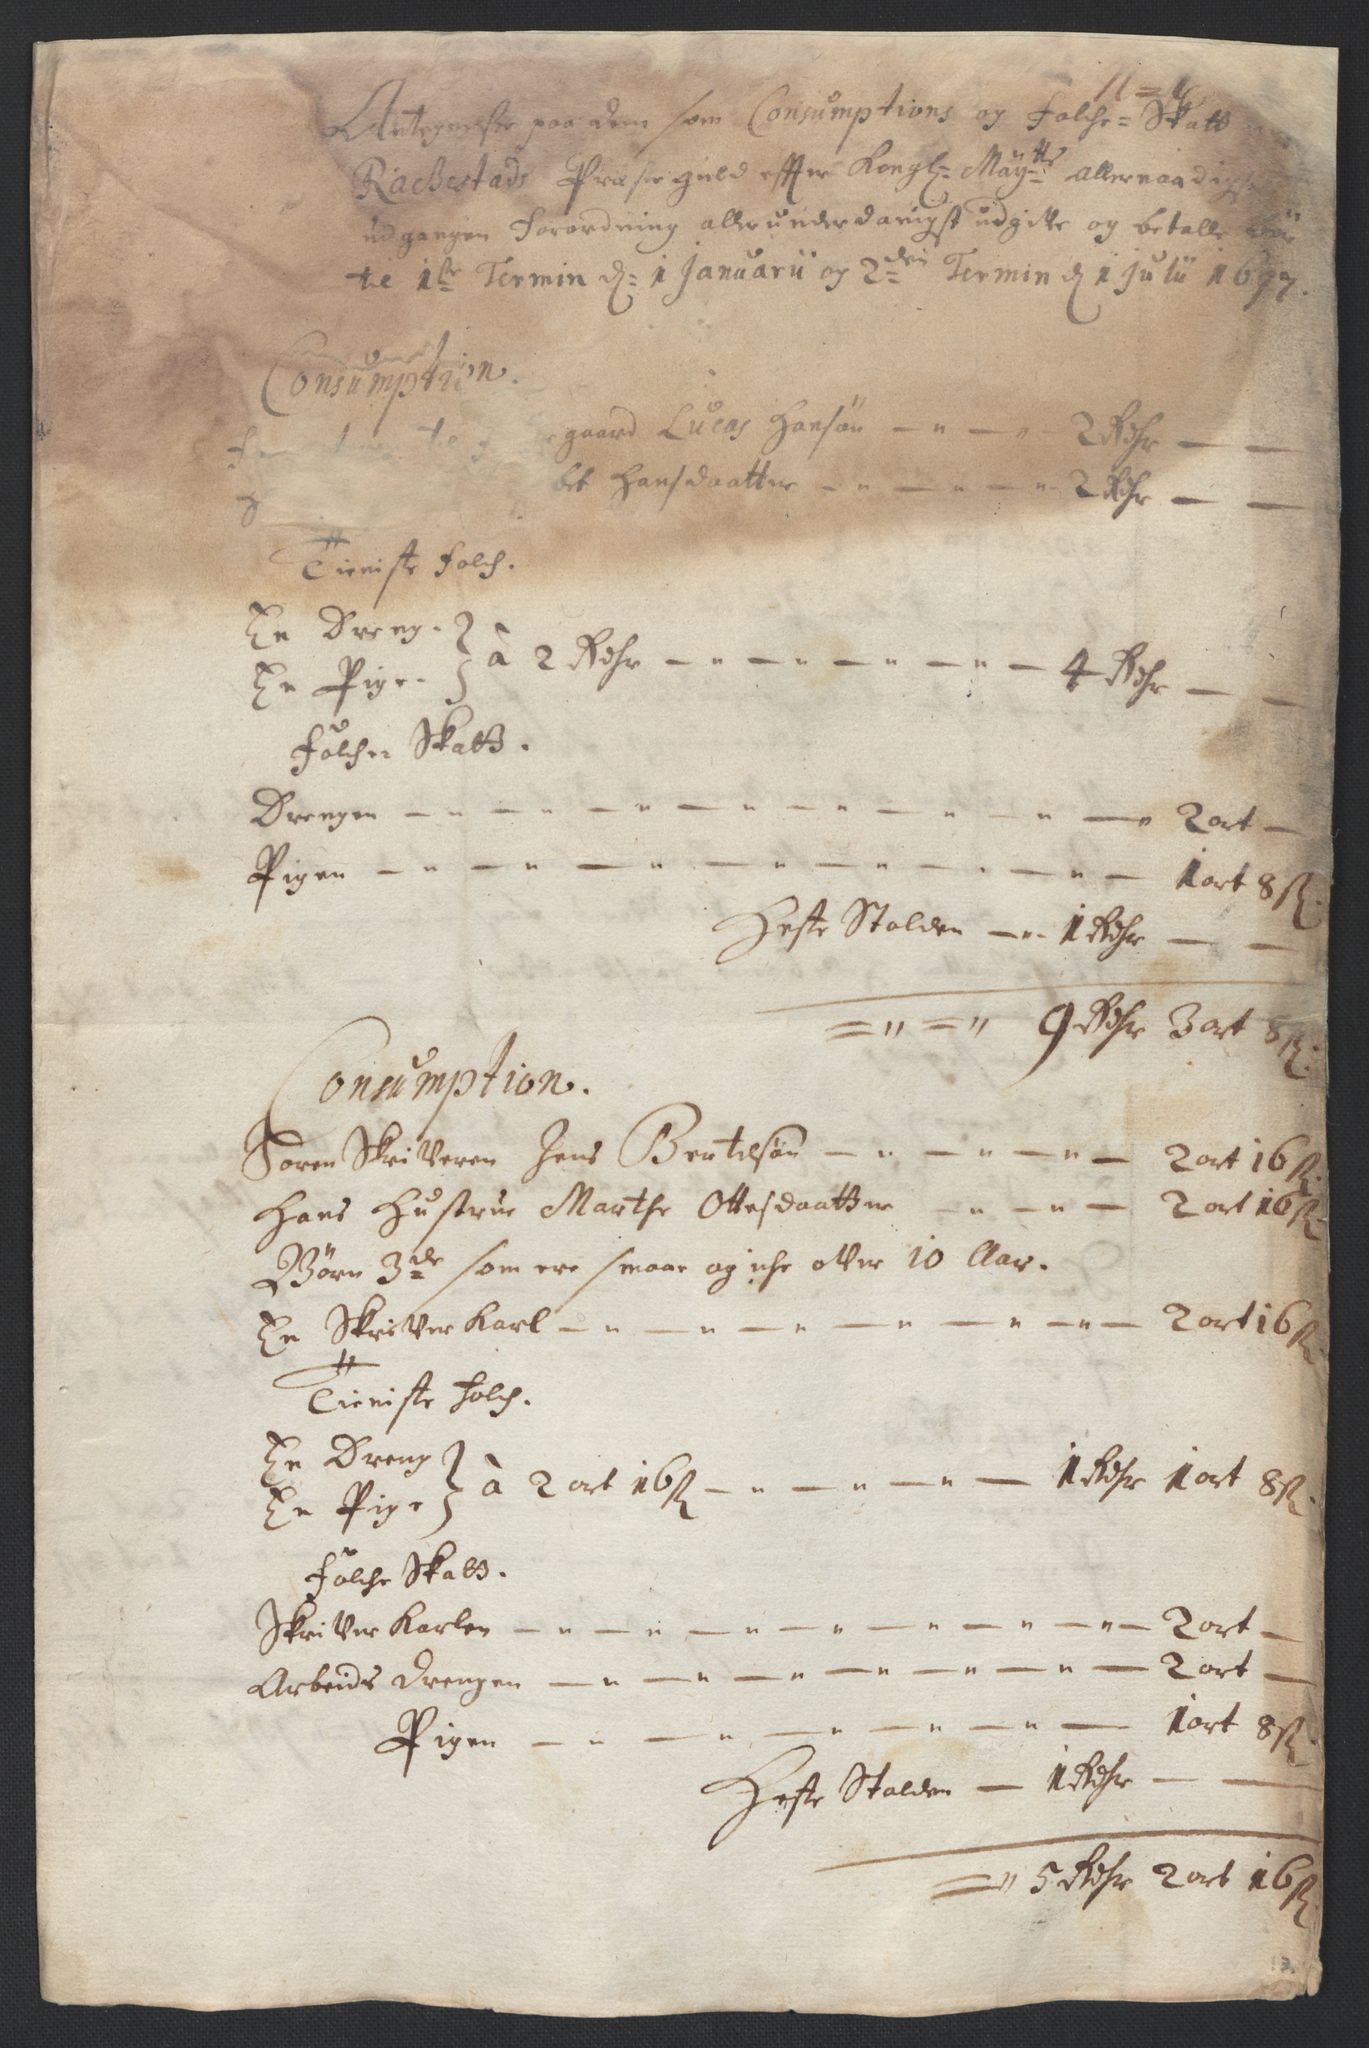 Antegnelse paa dem som Consumptions og Folche=Skatt
Rachestads Præstegield effter Kongl: Maÿtts allernaadigst
udgangen forordning allerunderdanigst udgitte og betalle bør
te 1ste Termin d: 1 Januarii og 2den Termin d 1 Julii 1697.
Consumption.
gaard Lucas Hansøn — " — " 2 Rdr — —
bet Hansdaatter — " — " — " — " 2 Rdr — —
Tieniste folch.
En Dreng.
En Pige. } à 2 Rdr — " — " — " — " — 4 Rdr — —
Folche Skatt.
Drengen — " — " — " — " — " — " — " — " 2 ort —
Pigen — " — " — " — " — " — " — " — 1 ort 8 s
Heste Stalden — " — 1 Rdr — —
= " = " 9 Rdr 3 ort 8 s
Consumption.
Soren Skriveren Jens Bertelsøn — " — " — " — 2 ort 16 s
Hans Hustrue Marthe Ottesdaatter — " — " — 2 ort 16 s
Børn 3de som ere smaae og iche over 10 Aar.
En Skriver Karl — " — " — " — " — " — " — 2 ort 16 s
Tieniste folch.
En Dreng
En Pige } à 2 ort 16 s — " — " — " — 1 Rdr 1 ort 8 s
Folche Skatt.
Skriver Karlen — " — " — " — " — " — " — " — 2 ort —
Arbeids drengen — " — " — " — " — " — " — 2 ort —
Pigen — " — " — " — " — " — 1 ort 8 s
Heste Stalden — 1 Rdr — —
= " 5 Rdr 2 ort 16 s